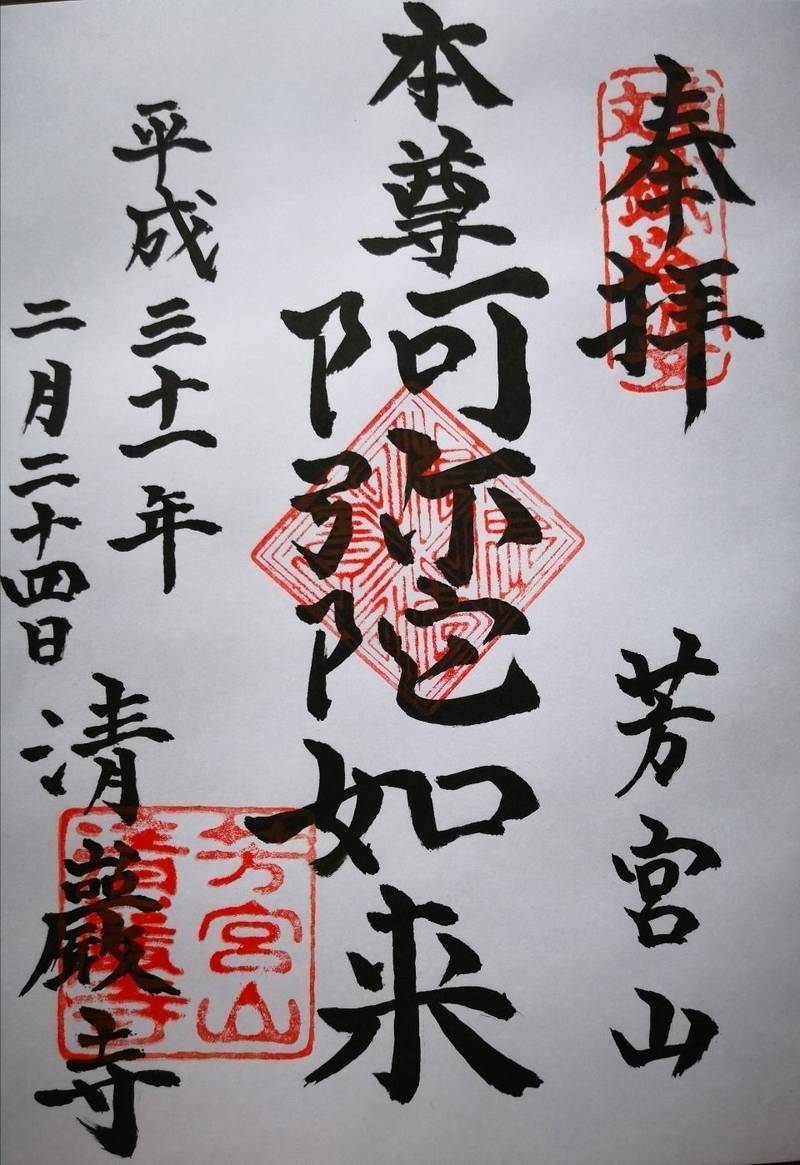 奉拝
芳宮山
本尊
阿弥陀如来
平成三十一年
二月二十四日
清巌寺
芳宮山
清巌寺